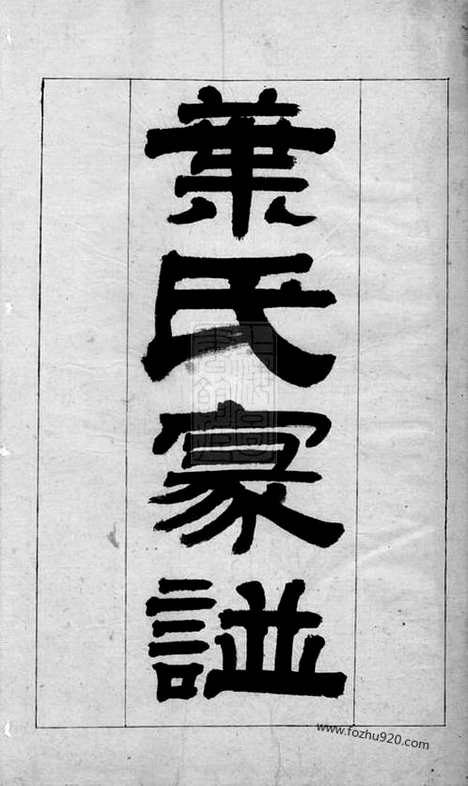 葉氏家諩
www.fozhu920.com